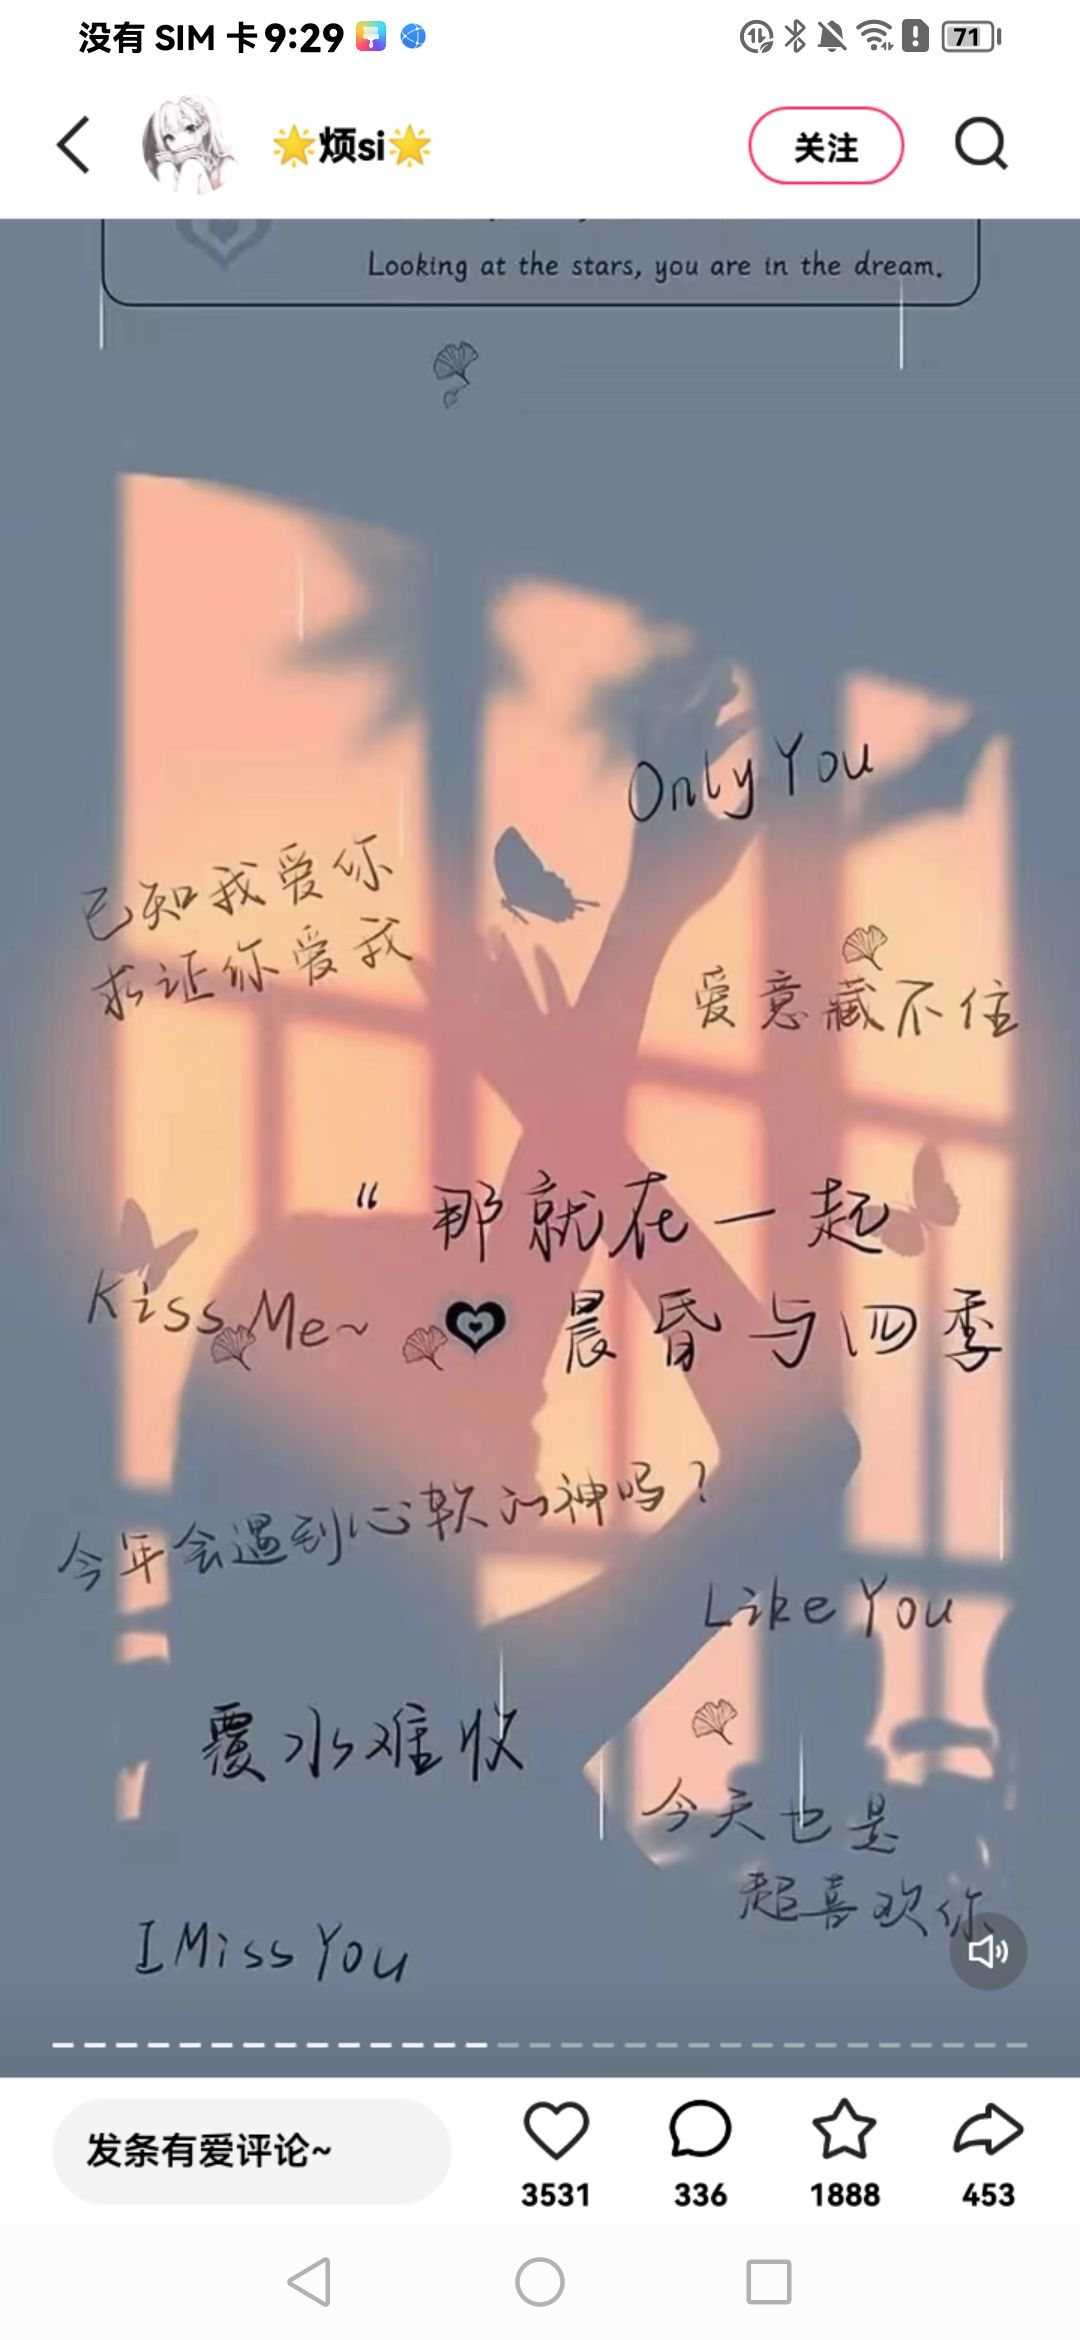 没有 SIM 卡 9:29
71
🌟烦si🌟
关注
Looking at the stars, you are in the dream.
Only You
已知我爱你
求证你爱我
爱意藏不住
“ 那就在一起
Kiss Me~
晨昏与四季
今年会遇到心软的神吗?
Like You
覆水难收
今天也是
超喜欢你
I Miss You
发条有爱评论~
3531
336
1888
453